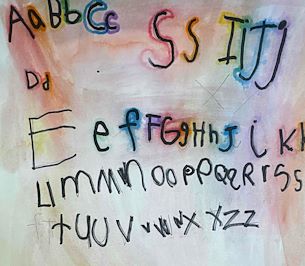 AaBbCc Ss IiJj
Dd
E e f F G g H h J i K k
L l m M n N o o P p Q q R r S s
t u U v v w w x X z z